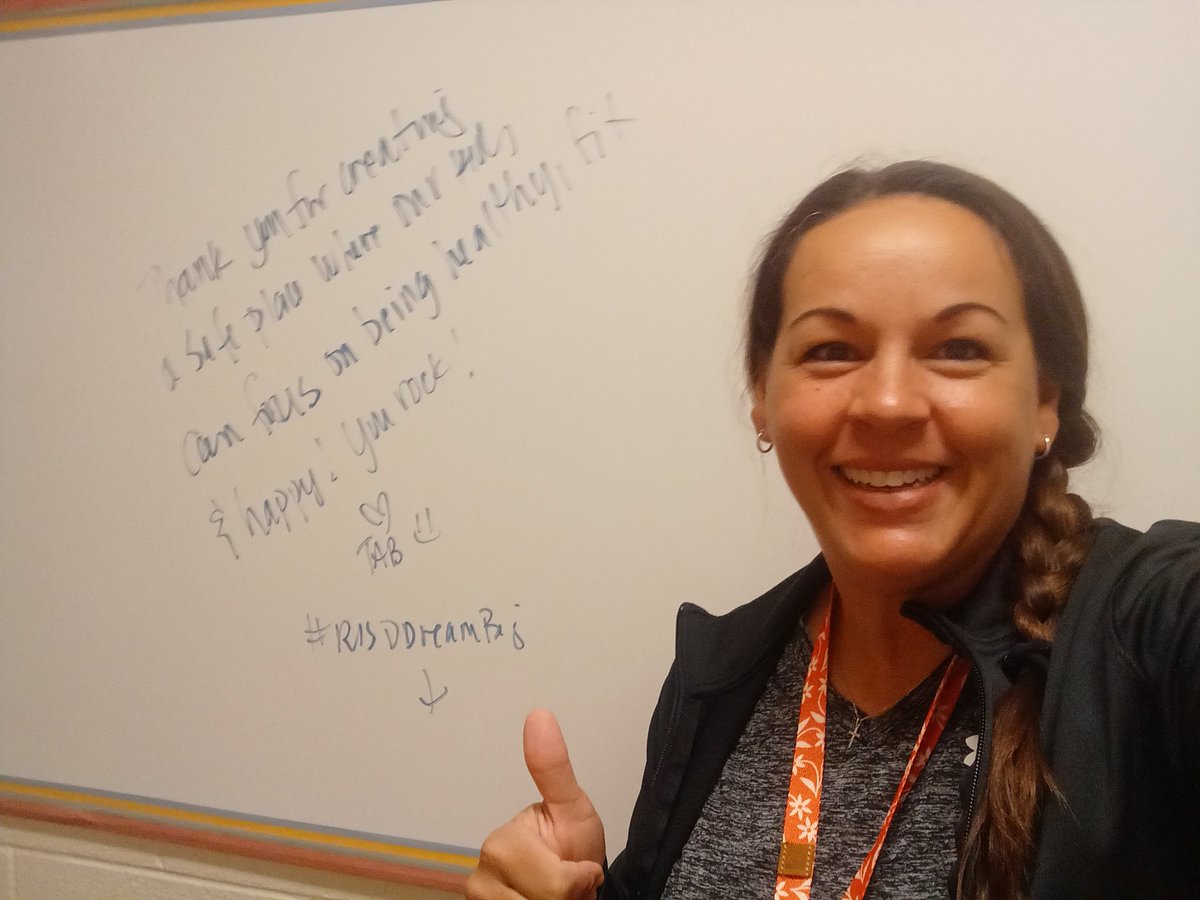 Thank you for creating
a safe place where our kids
can focus on being healthy, fit
& happy! You rock!
TAB
#RISDDreamBig